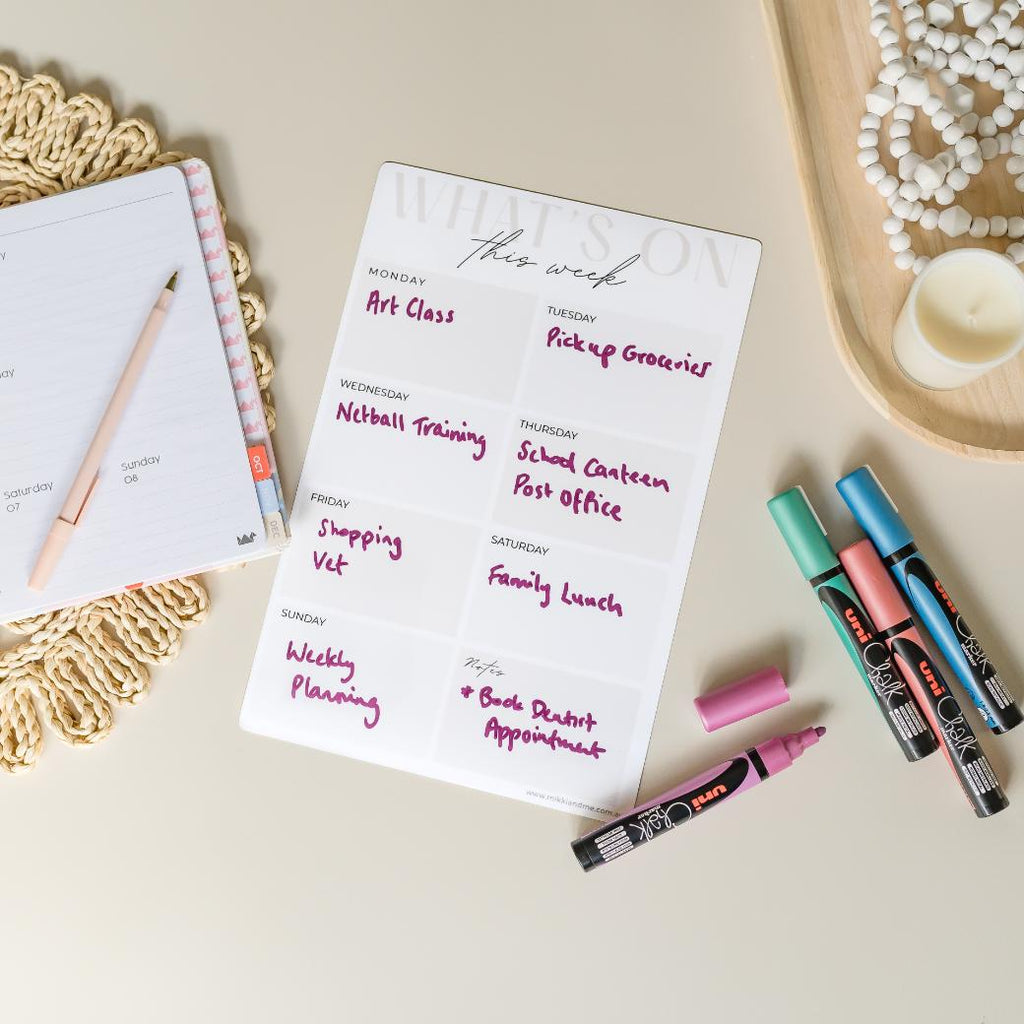 WHAT'S ON
this week
MONDAY
Art Class
TUESDAY
Pick up Groceries
WEDNESDAY
Netball Training
THURSDAY
School Canteen
Post Office
FRIDAY
Shopping
Vet
SATURDAY
Family Lunch
SUNDAY
Weekly
Planning
Notes
* Book Dentist
Appointment
www.mikkiandme.com.a
Saturday
07
Sunday
08
OCT
DEC
uni Chalk
marker
uni Chalk
marker
uni Chalk
marker
uni Chalk
marker